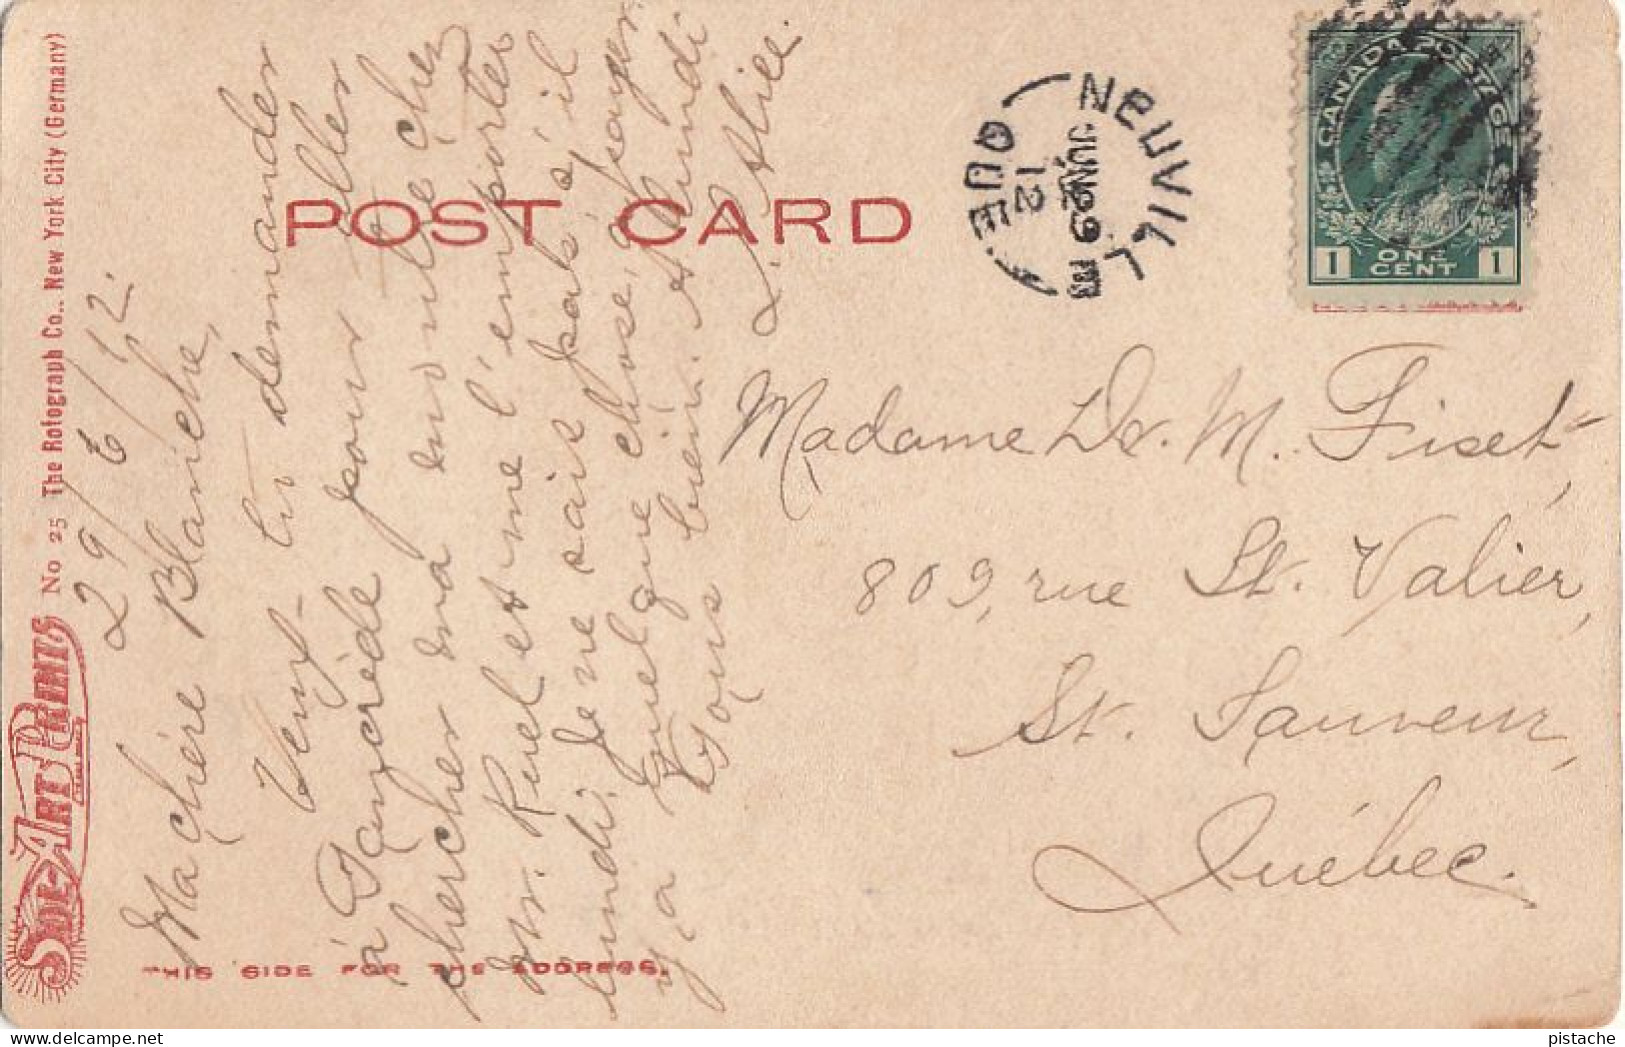 No 25 The Rotograph Co., New York City (Germany)
SOL-ART PRINTS
POST CARD
THIS SIDE FOR THE ADDRESS.
NEUVILLE
QUE
JUN 29
12
CANADA POSTAGE
1 ONE CENT 1
29/6/12.
Ma chère Blanche,
Veux-tu demander
à Tancrède pour aller
chercher ma moule chez
Mr. Ruel et me l'emporter
lundi. Je ne sais pas s'il
y a quelque chose à payer.
Tous bien. A lundi
Alice.
Madame Dr. M. Fiset,
809, rue St. Valier,
St. Sauveur,
Québec.
pistache